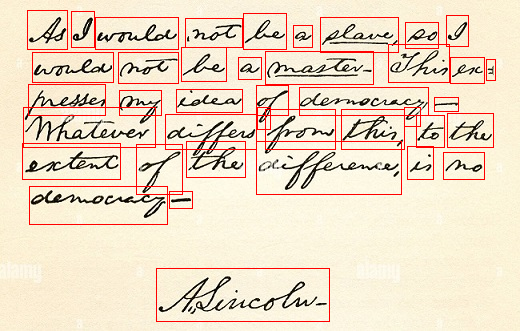 As I would not be a slave, so I
would not be a master. This ex=
presses my idea of democracy —
Whatever differs from this, to the
extent of the difference, is no
democracy —
A. Lincoln —